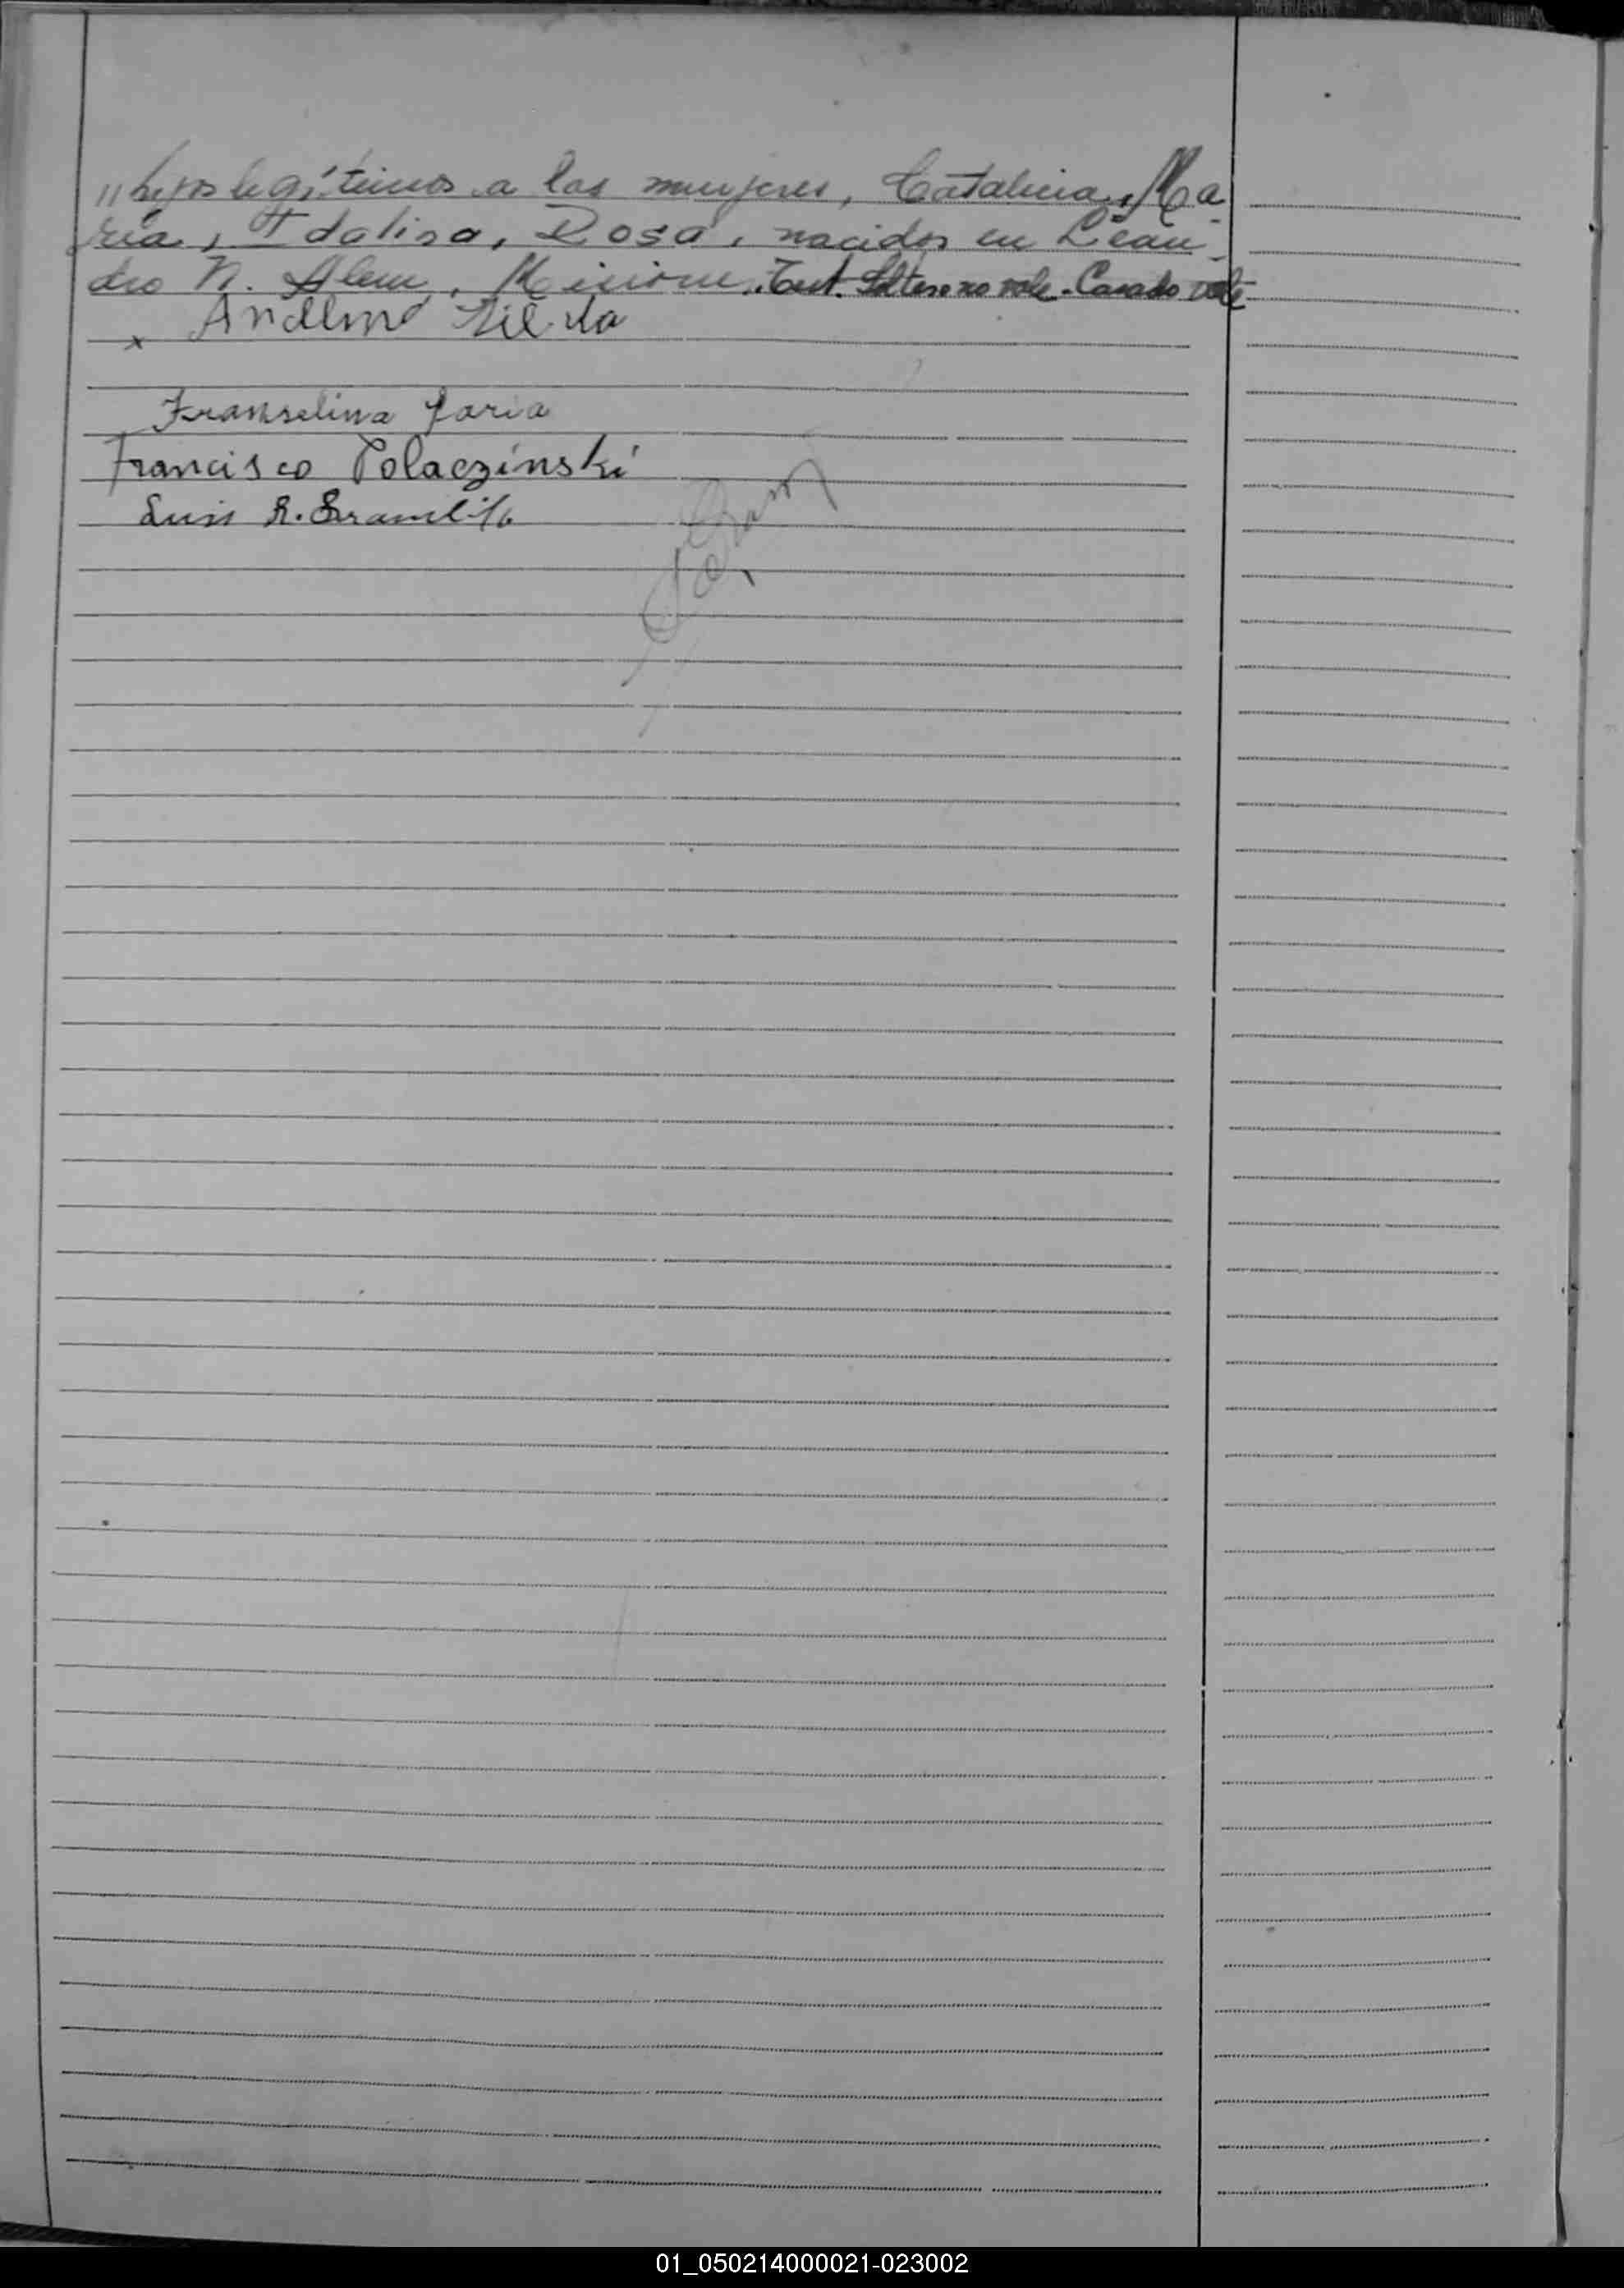 "hijos legítimos a las mujeres, Catalina, Ma
ría, Idalina, Rosa, nacidos en Lean-
dro N. Alem, Misiones. Test. Soltero no vale - Casado vale
x Andelmo Silva
Franselina Faria
Francisco Polaczinski
Luis R.
01_050214000021-023002